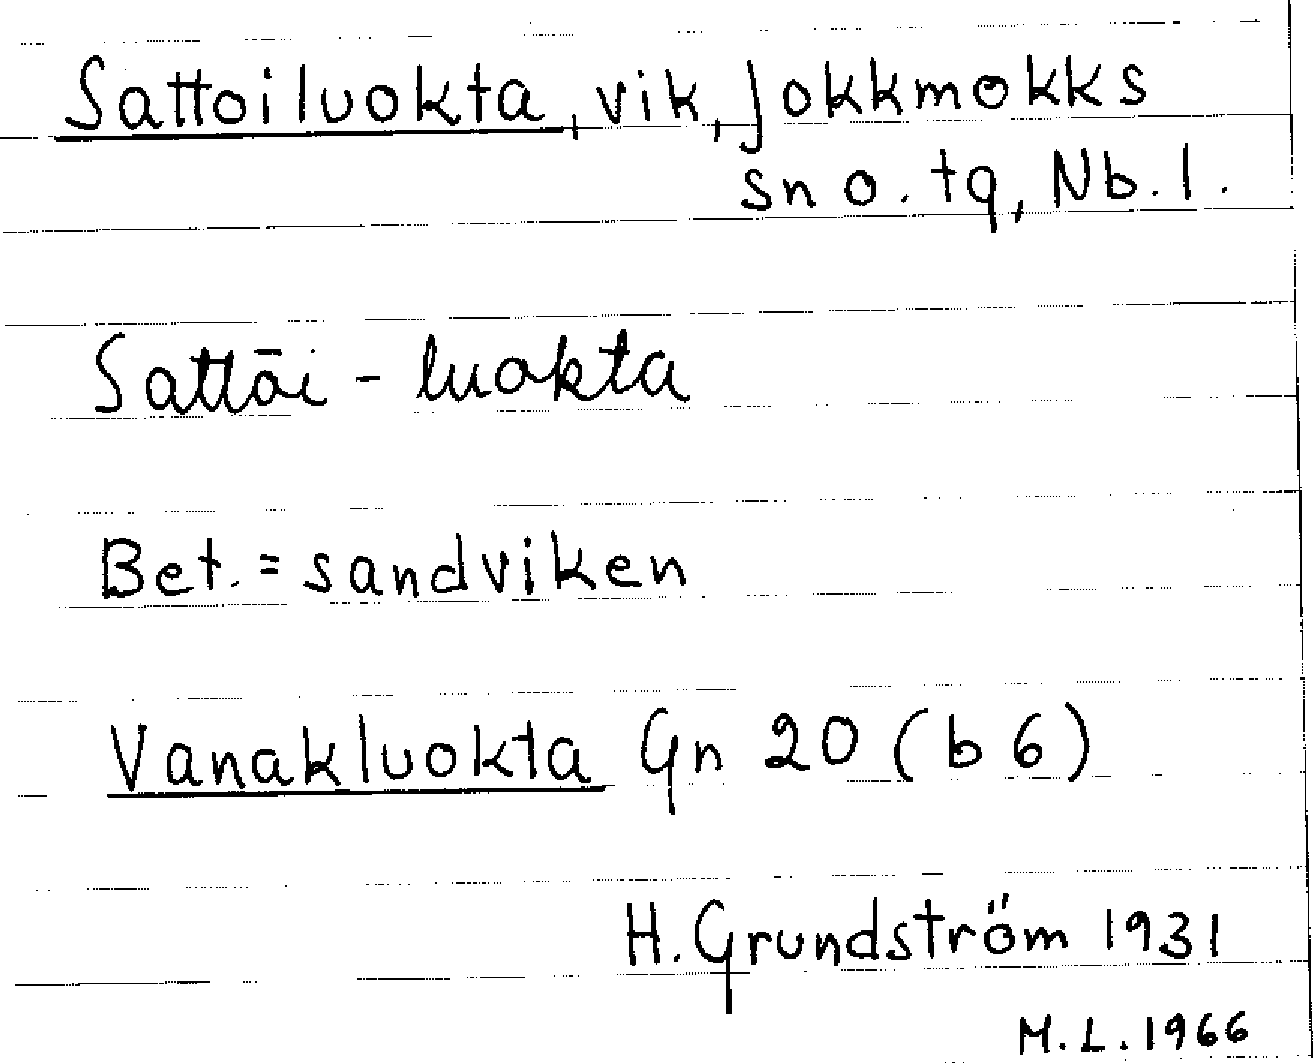 Sattoiluokta, vik, Jokkmokks
sn o. tg, Nb. l.
Sattōi - luokta
Bet. = sandviken
Vanakluokta Gn 20 (b 6)
H. Grundström 1931
M. L. 1966